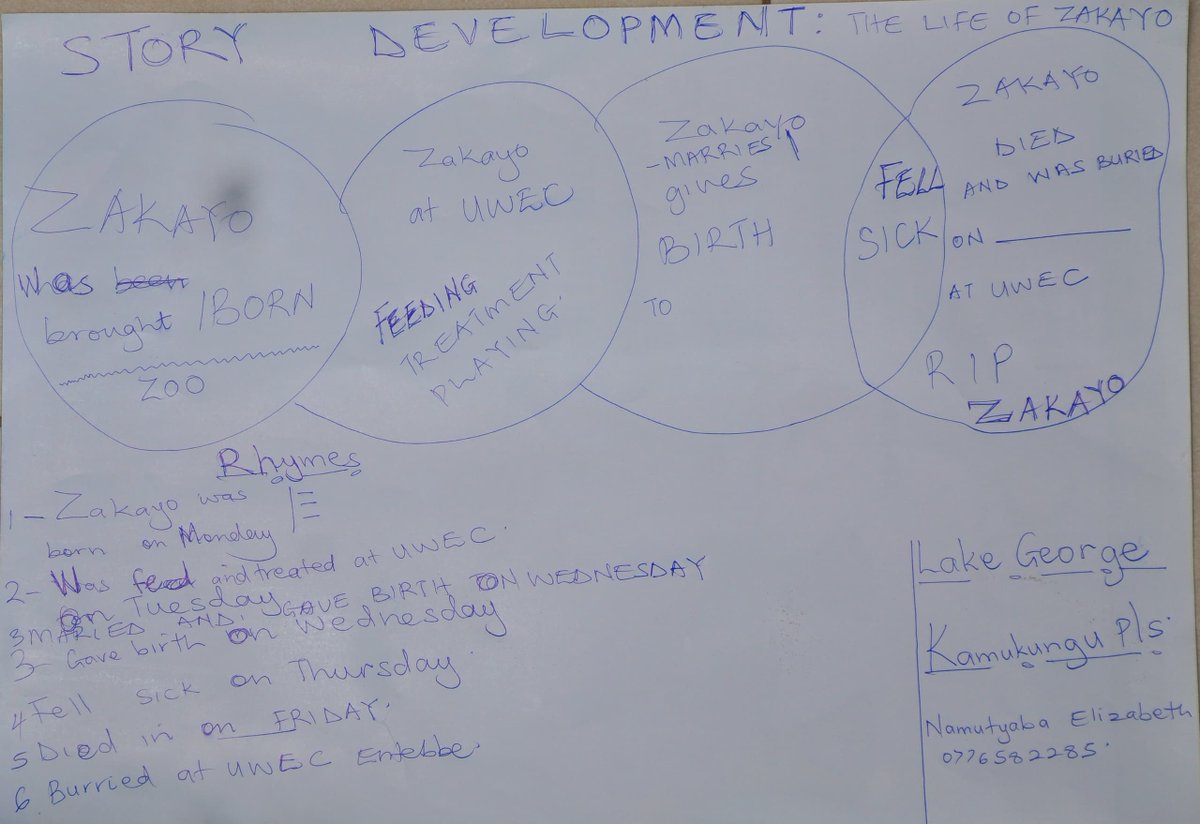 STORY DEVELOPMENT: THE LIFE OF ZAKAYO
ZAKAYO
Was been
brought /BORN
ZOO
Zakayo
at UWEC
FEEDING
TREATMENT
PLAYING.
Zakayo
- MARRIES /
gives
BIRTH
TO
FELL
SICK
ZAKAYO
DIED
AND WAS BURIED
ON
AT UWEC
RIP
ZAKAYO
Rhymes
1 - Zakayo was
born on Monday
2 - Was feed and treated at UWEC.
On Tuesday
3 MARIED AND GAVE BIRTH ON WEDNESDAY
3 - Gave birth on Wednesday
4 Fell sick on Thursday.
5 Died in on FRIDAY.
6 Burried at UWEC Entebbe.
Lake George
Kamukungu P/s.
Namutyaba Elizabeth
0776582285.